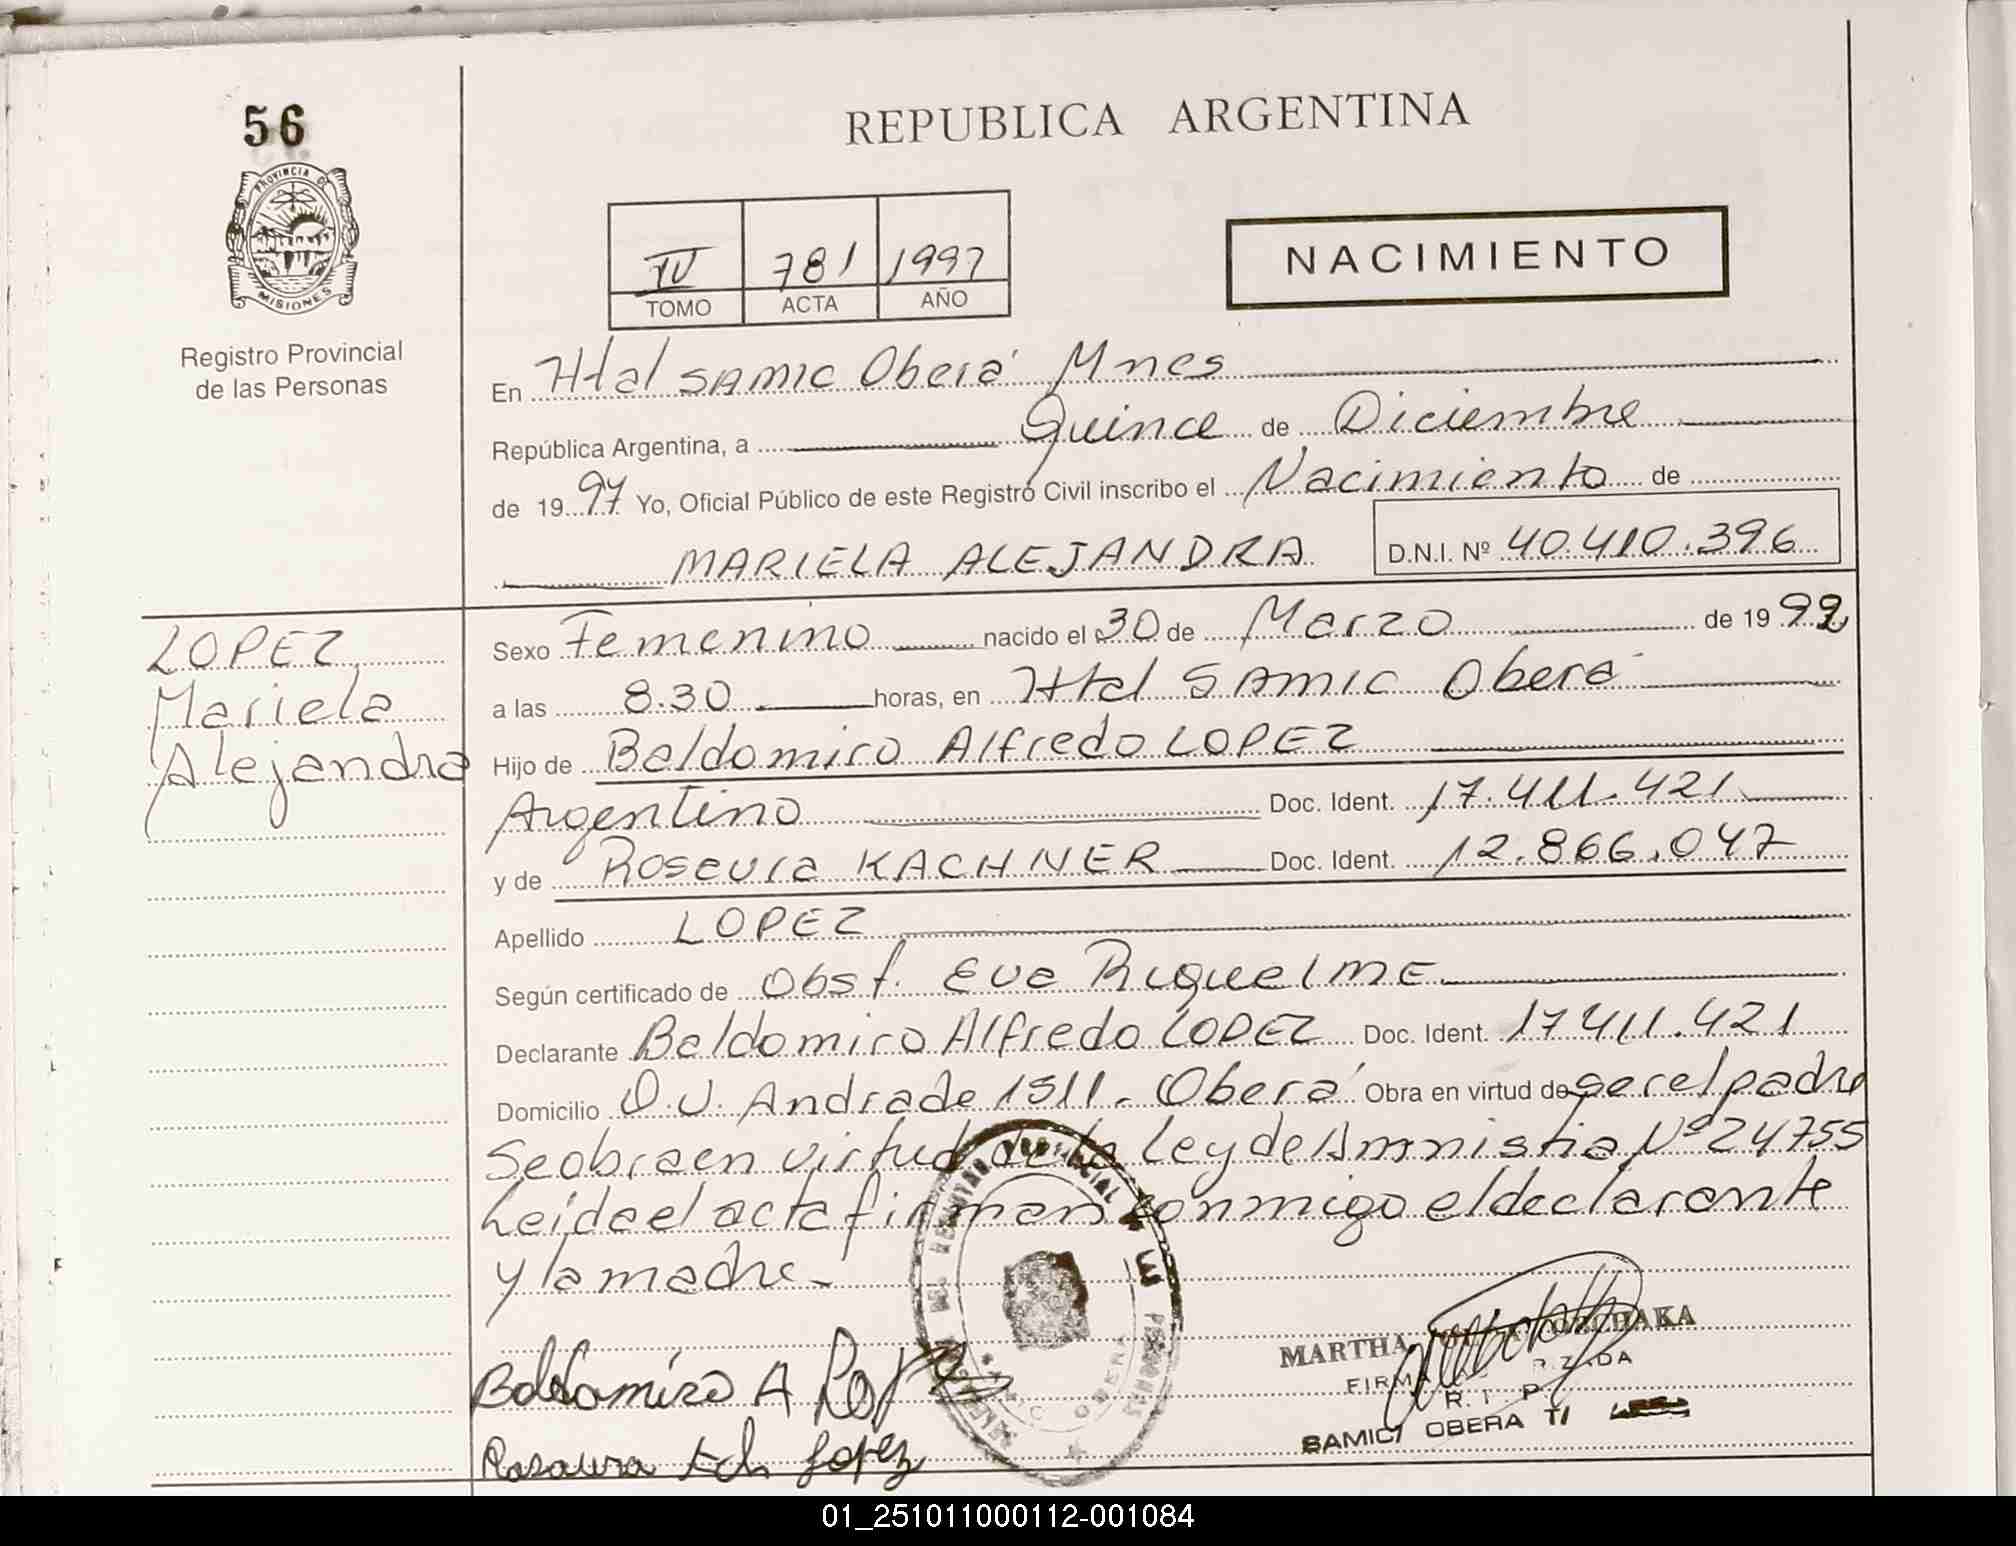 56
REPUBLICA ARGENTINA
PROVINCIA DE
MISIONES
Registro Provincial
de las Personas
IV 781 1997
TOMO ACTA AÑO
NACIMIENTO
En Htal SAMIC Oberá Mnes
República Argentina, a Quince de Diciembre
de 1997 Yo, Oficial Público de este Registro Civil inscribo el Nacimiento de
MARIELA ALEJANDRA D.N.I. Nº 40.410.396
LOPEZ
Mariela
Alejandra
Sexo Femenino nacido el 30 de Marzo de 1992
a las 8.30 horas, en Htal SAMIC Oberá
Hijo de Baldomiro Alfredo LOPEZ
Argentino Doc. Ident. 17.411.421
y de Rosaura KACHNER Doc. Ident. 12.866.047
Apellido LOPEZ
Según certificado de Obst. Eva RiquelME
Declarante Baldomiro Alfredo LOPEZ Doc. Ident. 17.411.421
Domicilio O.V. Andrade 1511. Oberá Obra en virtud de ser el padre
Se obra en virtud de la Ley de Amnistia Nº 24755
Leida el acta firman conmigo el declarante
y la madre.-
Baldomiro A Lopez
Rosaura Lopez
MARTHA
FIRMA
R. P.
SAMIC OBERA
01_251011000112-001084